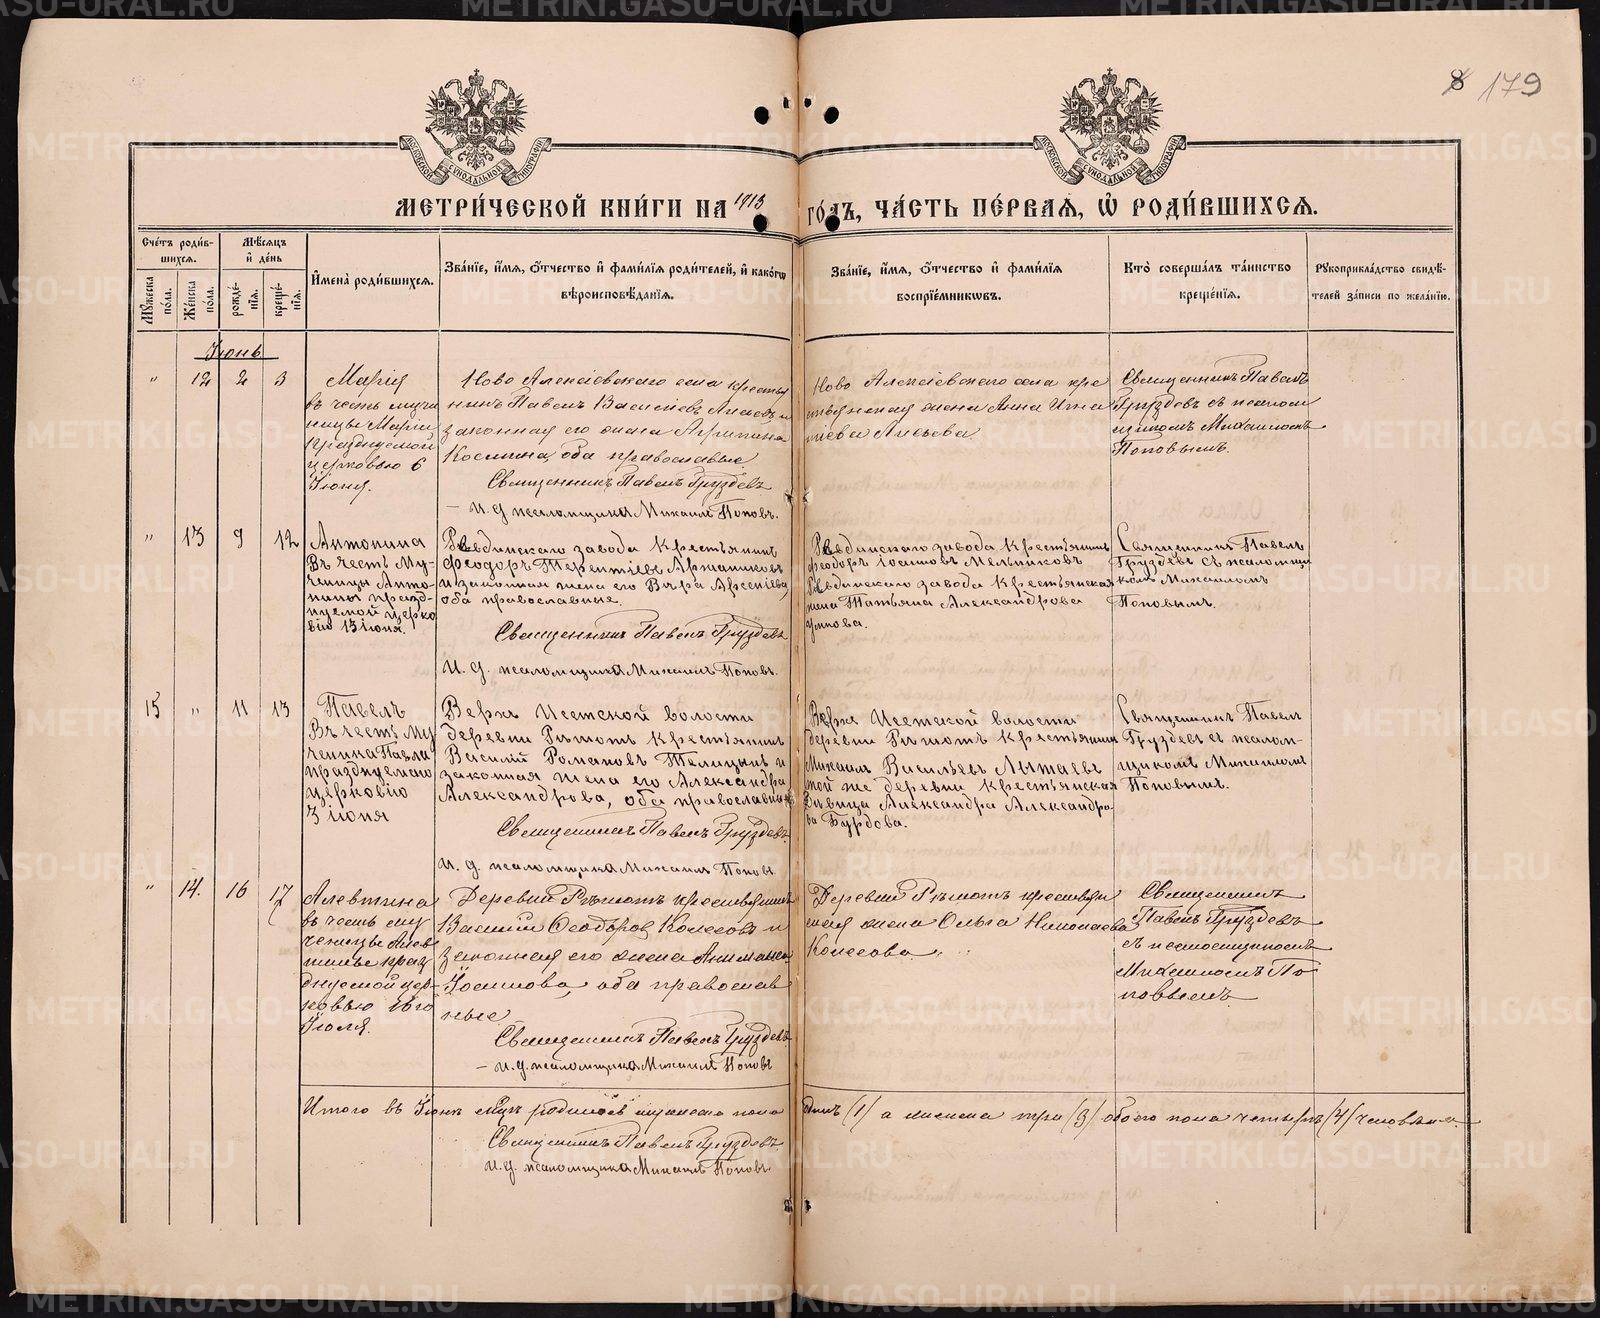 8 179
МЕТРИ́ЧЕСКОЙ КНИ́ГИ НА 1913 ГО́ДЪ, ЧА́СТЬ ПЕ́РВАЯ, Ѡ РОДИ́ВШИХСЯ.
МОСКОВСКОЙ СѴНОДАЛЬНОЙ ТИПОГРАФІИ
МОСКОВСКОЙ СѴНОДАЛЬНОЙ ТИПОГРАФІИ
Сче́тъ роди́вшихся.
Мꙋжеска пола.
Же́нска по́ла.
Мѣ́сяцъ и҆ де́нь
рожде́нїя.
креще́нїя.
И҆мена̀ роди́вшихся.
Зва́нїе, и҆́мя, о҆́тчество и҆ фами́лїя роди́телей, и҆ како́гѡ вѣроисповѣ́данїя.
Зва́нїе, и҆́мя, о҆́тчество и҆ фами́лїя воспрїе́мникѡвъ.
Кто̀ соверша́лъ та́инство креще́нїя.
Рꙋкоприкла́дство свидѣ́телей за́писи по жела́нїю.
Іюнь
" 12 2 3
Марія
въ честь мучи
ницы Маріи
празднуемой
церковью 6
Іюня.
Ново Алексіевскаго села крестья
нинъ Павелъ
законная его жена
Космина, оба православные
Священникъ Павелъ Груздевъ
И. д. псаломщика Михаилъ Поповъ.
Ново Алексіевскаго села кре
стьянская жена Анна Игна
тіева
Священникъ Павелъ
Груздевъ съ псалом
щикомъ Михаиломъ
Поповымъ.
" 13 9 12
Антонина
Въ честь Му-
ченицы Анто-
нины празд-
нуемой церко
вію 13 іюня.
Ревдинскаго завода Крестьянинъ
Ѳеодоръ Терентіевъ
и законная жена его Вѣра Арсеніева,
оба православные.
Священникъ Павелъ Груздевъ
И. д. псаломщика Михаилъ Поповъ.
Ревдинскаго завода Крестьянинъ
Ѳеодоръ Іоанновъ Мельниковъ
Ревдинскаго завода Крестьянская
жена Татьяна Александрова
Священникъ Павелъ
Груздевъ съ псаломщи
комъ Михаиломъ
Поповымъ.
15 " 11 13
Павелъ
Въ честь Му
ченика Павла
празднуемаго
церковію
3 іюня
Верхъ Исетской волости
деревни Рѣшотъ Крестьянинъ
Василій Романовъ Телицынъ и
законная жена его Александра
Александрова, оба православные
Священникъ Павелъ Груздевъ.
И. д. псаломщика Михаилъ Поповъ
Верхъ Исетской волости
деревни Рѣшотъ Крестьянинъ
Михаилъ Васильевъ
той же деревни Крестьянская
Дѣвица Александра Александро-
ва Бурдова.
Священникъ Павелъ
Груздевъ съ псалом-
щикомъ Михаиломъ
Поповымъ.
" 14. 16 17
Алевтина
въ честь му
ченицы Алев
тины праз
днуемой цер-
ковью 16го
Іюля.
Деревни Рѣшотъ крестьянинъ
Василій Ѳеодоровъ Колесовъ и
законная его жена
оба православ
ные
Священникъ Павелъ Груздевъ
И. д. псаломщика Михаилъ Поповъ
Деревни Рѣшотъ крестьян
ская жена Ольга Николаева
Колесова.
Священникъ
Павелъ Груздевъ
съ псаломщикомъ
Михаиломъ По
повымъ
Итого въ Іюнѣ м-цѣ родилось мужеска пола одинъ (1) а женска три (3) обоего пола четыре (4) человѣка.
Священникъ Павелъ Груздевъ
И. д. псаломщика Михаилъ Поповъ
METRIKI.GASO-URAL.RU